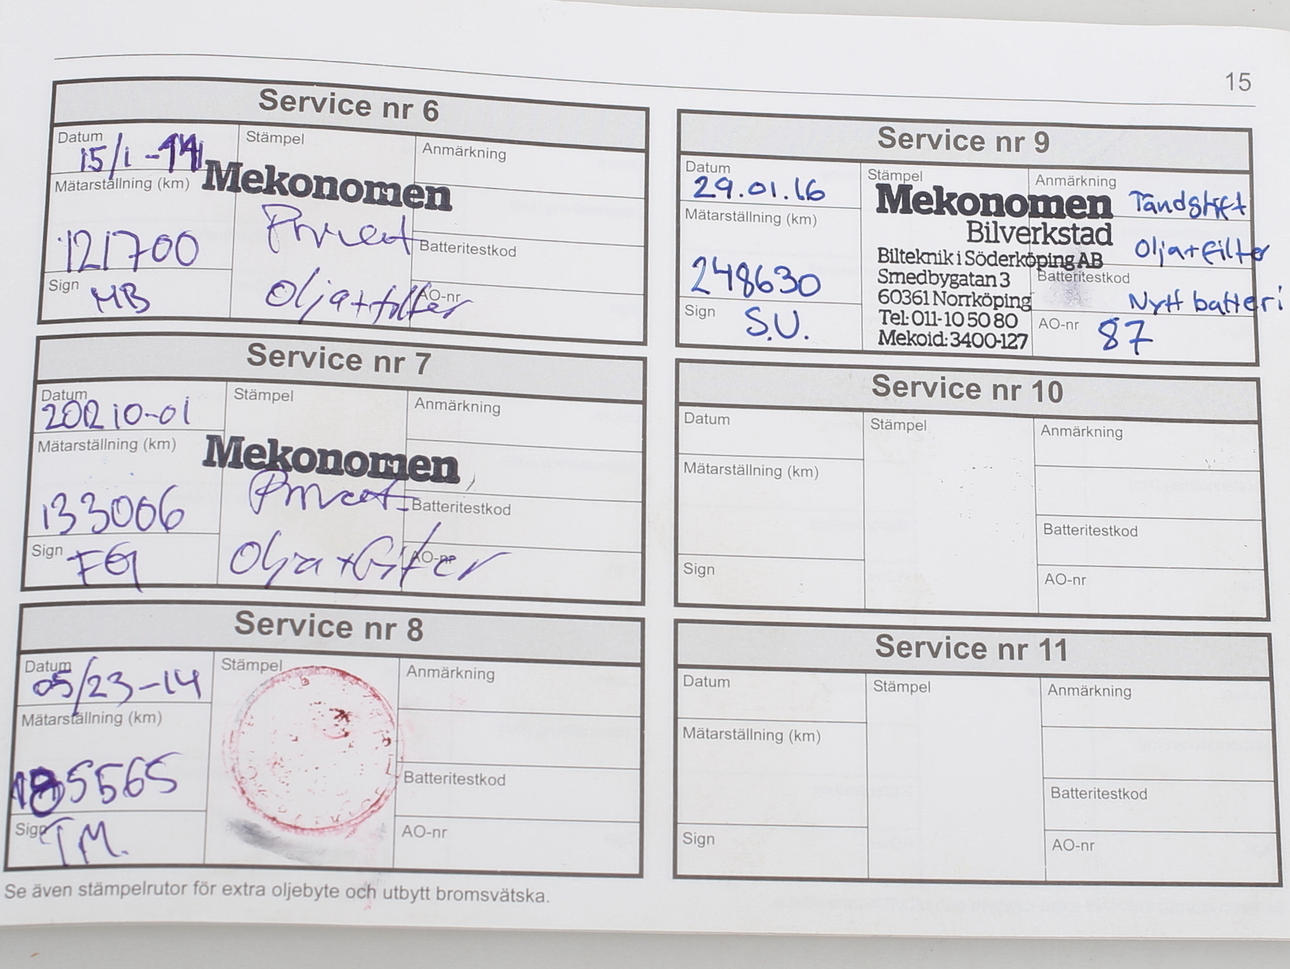 15
Service nr 6
Datum
15/1-11
Stämpel
Anmärkning
Mätarställning (km)
Mekonomen
121700
Privat
Batteritestkod
Sign
MB
Olja+filter
AO-nr
Service nr 7
Datum
Stämpel
Anmärkning
Mätarställning (km)
Mekonomen
133006
Privat
Batteritestkod
Sign
FG
Olja+filter
AO-nr
Service nr 8
Datum
05/23-14
Stämpel
Anmärkning
Mätarställning (km)
185565
Batteritestkod
Sign
TM.
AO-nr
Se även stämpelrutor för extra oljebyte och utbytt bromsvätska.
Service nr 9
Datum
29.01.16
Stämpel
Anmärkning
Tändstift
Mätarställning (km)
Mekonomen
Bilverkstad
Olja+filter
Bilteknik i Söderköping AB
Smedbygatan 3
60361 Norrköping
Tel: 011-10 50 80
Mekoid: 3400-127
248630
Batteritestkod
Nytt batteri
Sign
S.U.
AO-nr
87
Service nr 10
Datum
Stämpel
Anmärkning
Mätarställning (km)
Batteritestkod
Sign
AO-nr
Service nr 11
Datum
Stämpel
Anmärkning
Mätarställning (km)
Batteritestkod
Sign
AO-nr